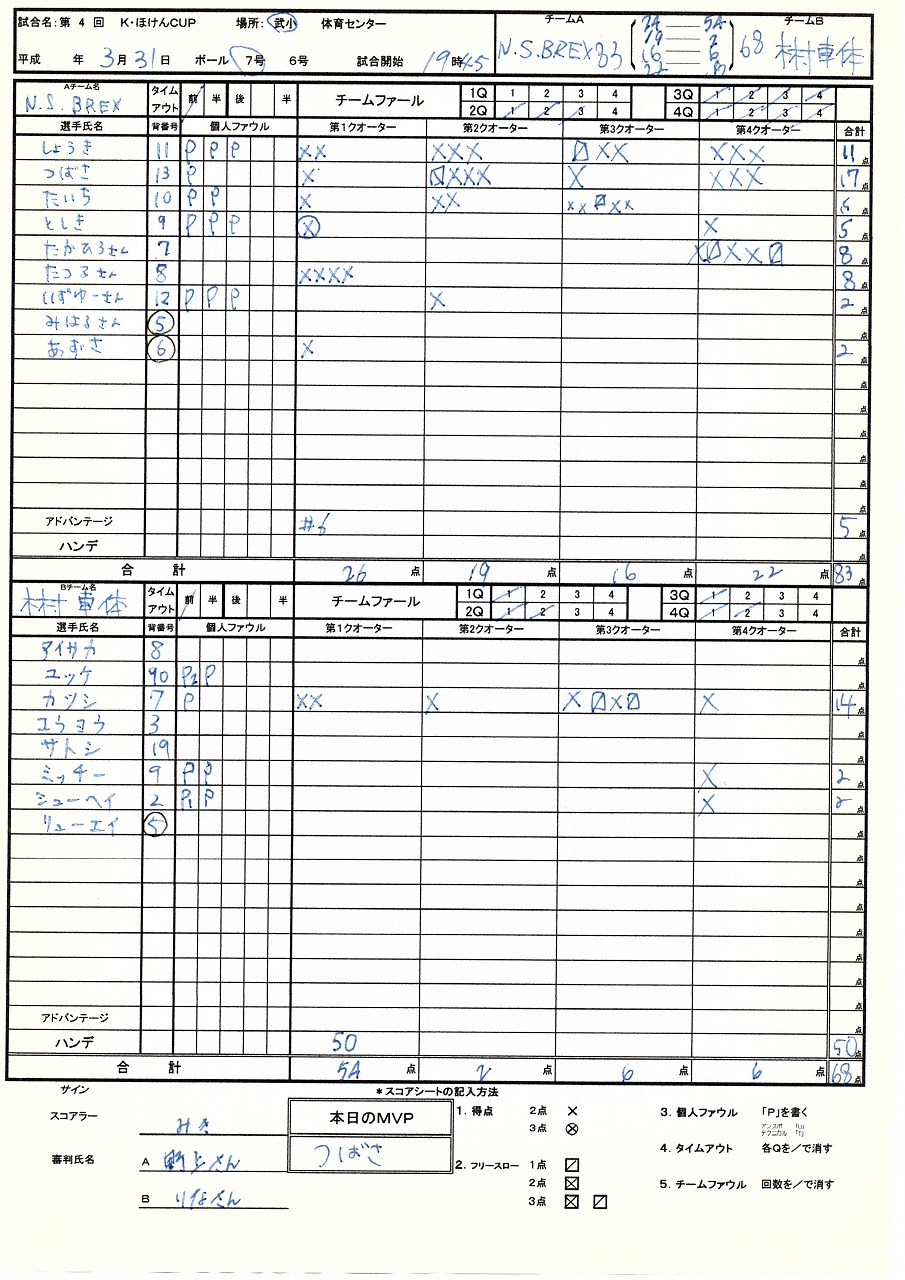 試合名:第 4 回 K・ほけんCUP 場所:武小 体育センター
平成 年 3月31日 ボール 7号 6号 試合開始 19時45
チームA チームB
N.S.BREX 83 68 村車体
16 6
Aチーム名 タイムアウト 前 半 後 半 チームファール 1Q 1 2 3 4 3Q 1 2 3 4
N.S.BREX 2Q 1 2 3 4 4Q 1 2 3 4
選手氏名 背番号 個人ファウル 第1クオーター 第2クオーター 第3クオーター 第4クオーター 合計
しょうき 11 P P P ×× ××× 〼×× ××× 11点
つばさ 13 P × 〼××× × ××× 17点
たいち 10 P P × ×× ××〼×× 点
としき 9 P P P ⓧ × 5点
たかひろさん 7 ×〼××〼 8点
たつるさん 8 ×××× 8点
いずゆーさん 12 P P P × 2点
みはるさん 5 点
あずさ 6 × 2点
点
点
点
点
点
点
アドバンテージ #6 5点
ハンデ 点
合計 26点 19点 16点 22点 83点
Bチーム名 タイムアウト 前 半 後 半 チームファール 1Q 1 2 3 4 3Q 1 2 3 4
村車体 2Q 1 2 3 4 4Q 1 2 3 4
選手氏名 背番号 個人ファウル 第1クオーター 第2クオーター 第3クオーター 第4クオーター 合計
アイサカ 8 点
ユッケ 90 P2 P 点
カツシ 7 P ×× × ×〼×〼 × 14点
ユウヨウ 3 点
サトシ 19 点
ミッチー 9 P P × 2点
シューヘイ 2 P1 P × 2点
リューエイ 5 点
点
点
点
点
点
点
点
アドバンテージ 点
ハンデ 50 50点
合計 54点 2点 6点 6点 68点
サイン
スコアラー みき
審判氏名 A 野上さん
B りなさん
本日のMVP
つばさ
*スコアシートの記入方法
1. 得点 2点 ×
3点 ⊗
2. フリースロー 1点 〼
2点 ☒
3点 ☒ 〼
3. 個人ファウル 「P」を書く
アンスポ 「U」
テクニカル 「T」
4. タイムアウト 各Qを/で消す
5. チームファウル 回数を/で消す